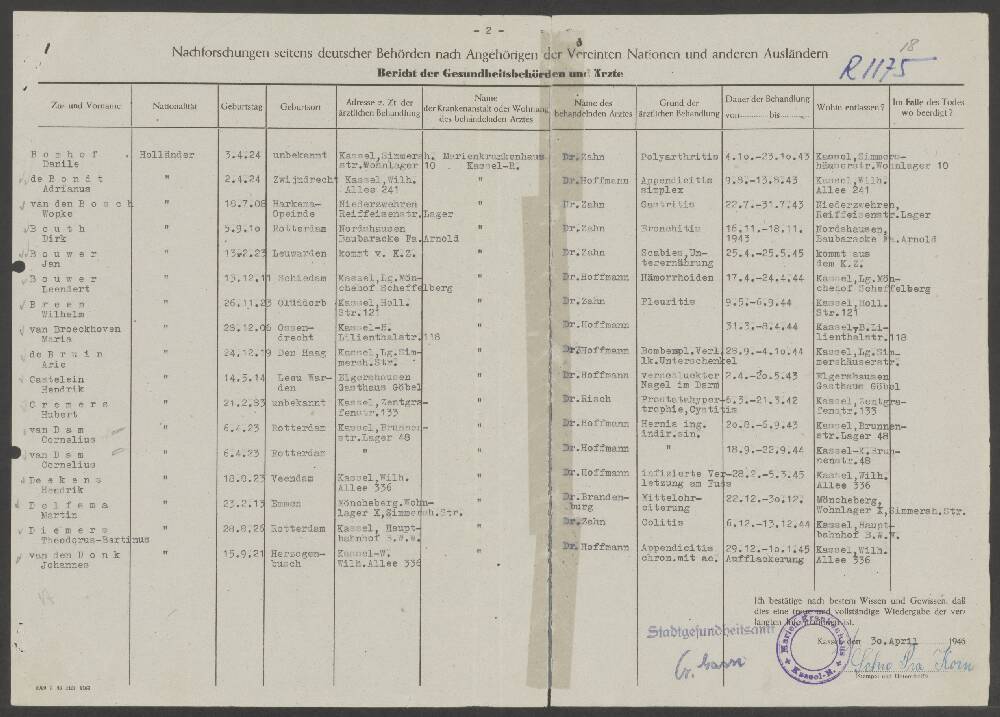 - 2 -
Nachforschungen seitens deutscher Behörden nach Angehörigen der Vereinten Nationen und anderen Ausländern
18
R 1175
Bericht der Gesundheitsbehörden und Ärzte
Zu- und Vorname Nationalität Geburtstag Geburtsort Adresse z. Zt. der ärztlichen Behandlung Name der Krankenanstalt oder Wohnung des behandelnden Arztes Name des behandelnden Arztes Grund der ärztlichen Behandlung Dauer der Behandlung von bis Wohin entlassen? Im Falle des Todes wo beerdigt?
Borhof Holländer 3.4.24 unbekannt Kassel,Simmersh. Marienkrankenhaus Dr.Zahn Polyarthritis 4.10.-23.10.43 Kassel,Simmers-
Danile str.Wohnlager 10 Kassel-R. häuserstr.Wohnlager 10
de Bondt " 2.4.24 Zwijndrecht Kassel,Wilh. " Dr.Hoffmann Appendicitis 9.8.-13.8.43 Kassel,Wilh.
Adrianus Allee 241 simplex Allee 241
van den Bosch " 18.7.08 Harkema- Niederzwehren " Dr.Zahn Gastritis 22.7.-31.7.43 Niederzwehren,
Wopke Opeinde Reiffeisenstr.Lager Reiffeisenstr.Lager
Bouth " 5.9.10 Rotterdam Nordshausen " Dr.Zahn Bronchitis 16.11.-18.11. Nordshausen,
Dirk Baubaracke Fa.Arnold 1943 Baubaracke Fa.Arnold
Bouwer " 13.2.23 Leuwarden kommt v. K.Z. " Dr.Zahn Scabies,Un- 25.4.-25.5.45 kommt aus
Jan terernährung dem K.Z.
Bouwer " 13.12.11 Schiedam Kassel,Lg.Mön- " Dr.Hoffmann Hämorrhoiden 17.4.-24.4.44 Kassel,Lg.Mön-
Leendert chehof Scheffelberg chehof Scheffelberg
Breem " 26.11.23 Olddorb Kassel,Holl. " Dr.Zahn Pleuritis 9.5.-6.9.44 Kassel,Holl.
Wilhelm Str.121 Str.121
van Broeckhoven " 28.12.06 Ossen- Kassel-B. " Dr.Hoffmann 31.3.-8.4.44 Kassel,B.Li-
Maria drecht Lilienthalstr.118 lienthalstr.118
de Bruin " 24.12.19 Den Haag Kassel,Lg.Sim- " Dr.Hoffmann Bombempl.Verl. 28.9.-4.10.44 Kassel,Lg.Sim-
Arie mersh.Str. lk.Unterschenkel mershäuserstr.
Castelein " 14.3.14 Leeu War- Elgershausen " Dr.Hoffmann verschluckter 2.4.-20.5.43 Elgershausen
Hendrik den Gasthaus Göbel Nagel im Darm Gasthaus Göbel
Cremers " 21.2.83 unbekannt Kassel,Zentgra- " Dr.Risch Prostatahyper- 6.3.-21.3.42 Kassel,Zentgra-
Hubert fenstr.133 trophie,Cystitis fenstr.133
van Dam " 6.4.23 Rotterdam Kassel,Brunnen- " Dr.Hoffmann Hernia ing. 20.8.-6.9.43 Kassel,Brunnen-
Cornelius str.Lager 48 indir.sin. str.Lager 48
van Dam " 6.4.23 Rotterdam " " Dr.Hoffmann " 18.9.-22.9.44 Kassel-K.Brun-
Cornelius nenstr.48
Deekens " 18.8.23 Veendam Kassel,Wilh. " Dr.Hoffmann infizierte Ver- 28.2.-5.3.45 Kassel,Wilh.
Hendrik Allee 336 letzung am Fuss Allee 336
Delfema " 23.2.13 Emmen Möncheberg.Wohn- " Dr.Branden- Mittelohr- 22.12.-30.12. Möncheberg,
Martin lager X,Simmersh.Str. burg eiterung Wohnlager X,Simmersh.Str.
Diemers " 28.8.26 Rotterdam Kassel, Haupt- " Dr.Zahn Colitis 6.12.-13.12.44 Kassel,Haupt-
Theodorus-Bartinus bahnhof B.W.W. bahnhof B.W.W.
van den Donk " 15.9.21 Herzogen- Kassel-W. " Dr.Hoffmann Appendicitis 29.12.-10.1.45 Kassel,Wilh.
Johannes busch Wilh.Allee 336 chron.mit ac. Aufflackerung Allee 336
Ich bestätige nach bestem Wissen und Gewissen, daß
dies eine treue und vollständige Wiedergabe der ver-
langten ist.
Stadtgesundheitsamt
Kassel, den 30.April 1946
Marien Krankenhaus Kassel-R.
Korn
Stempel und Unterschrift